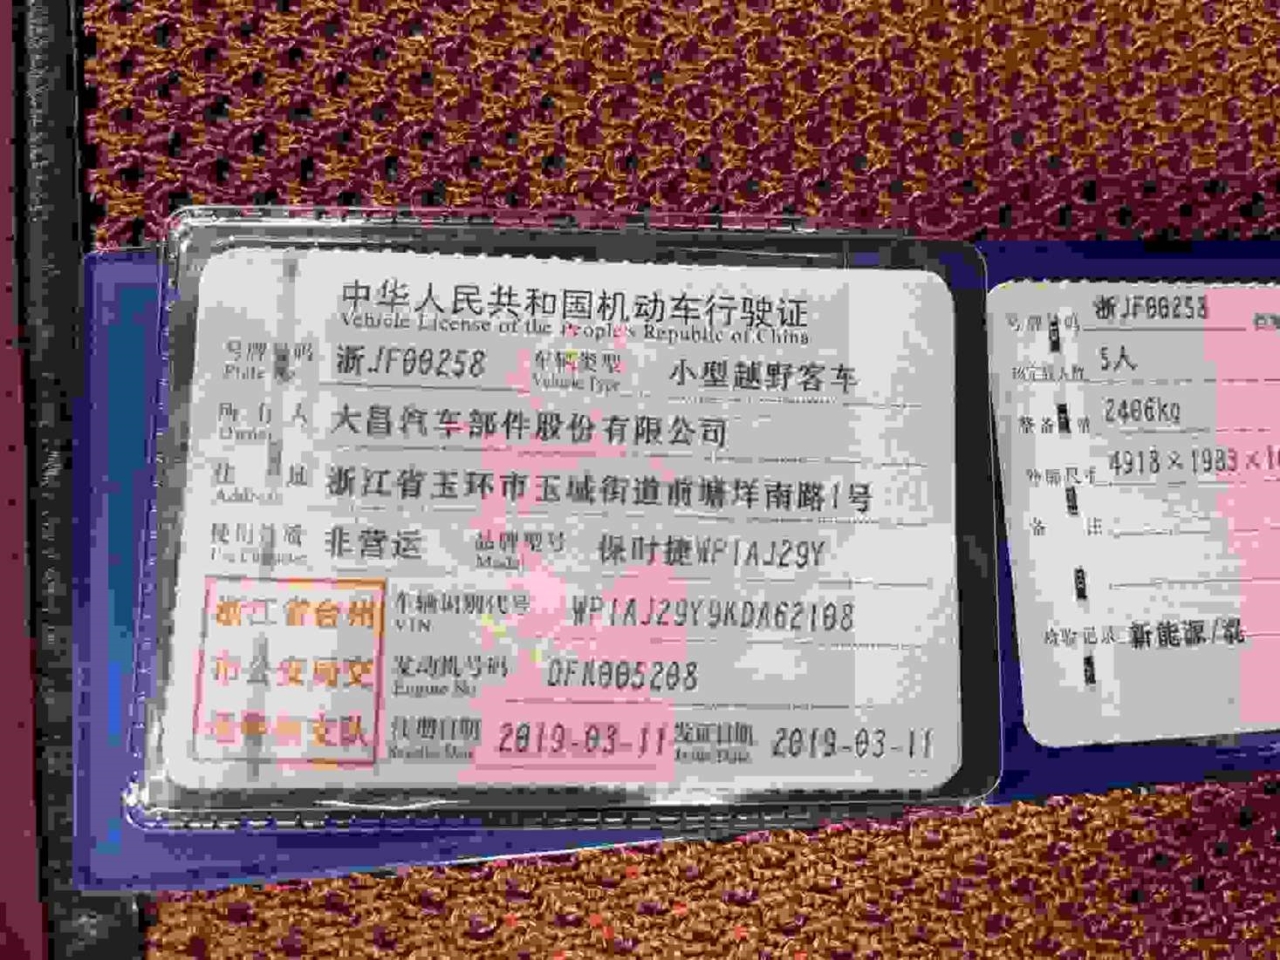 中华人民共和国机动车行驶证
Vehicle License of the People's Republic of China
号牌号码 浙JF00258 车辆类型 小型越野客车
Plate Vehicle Type
所有人 大昌汽车部件股份有限公司
Owner
住址 浙江省玉环市玉城街道前塘垟南路1号
Address
使用性质 非营运 品牌型号 保时捷WP1AJ29Y
Use Character Model
浙江省台州
市公安局交
通警察支队
车辆识别代号 WP1AJ29Y9KDA62108
VIN
发动机号码 DFK005208
Engine No
注册日期 2019-03-11 发证日期 2019-03-11
Register Date Issue Date
号牌号码 浙JF00258
核定载人数 5人
整备质量 2406kg
外廓尺寸 4918×1983×16
备注
检验记录 新能源/混